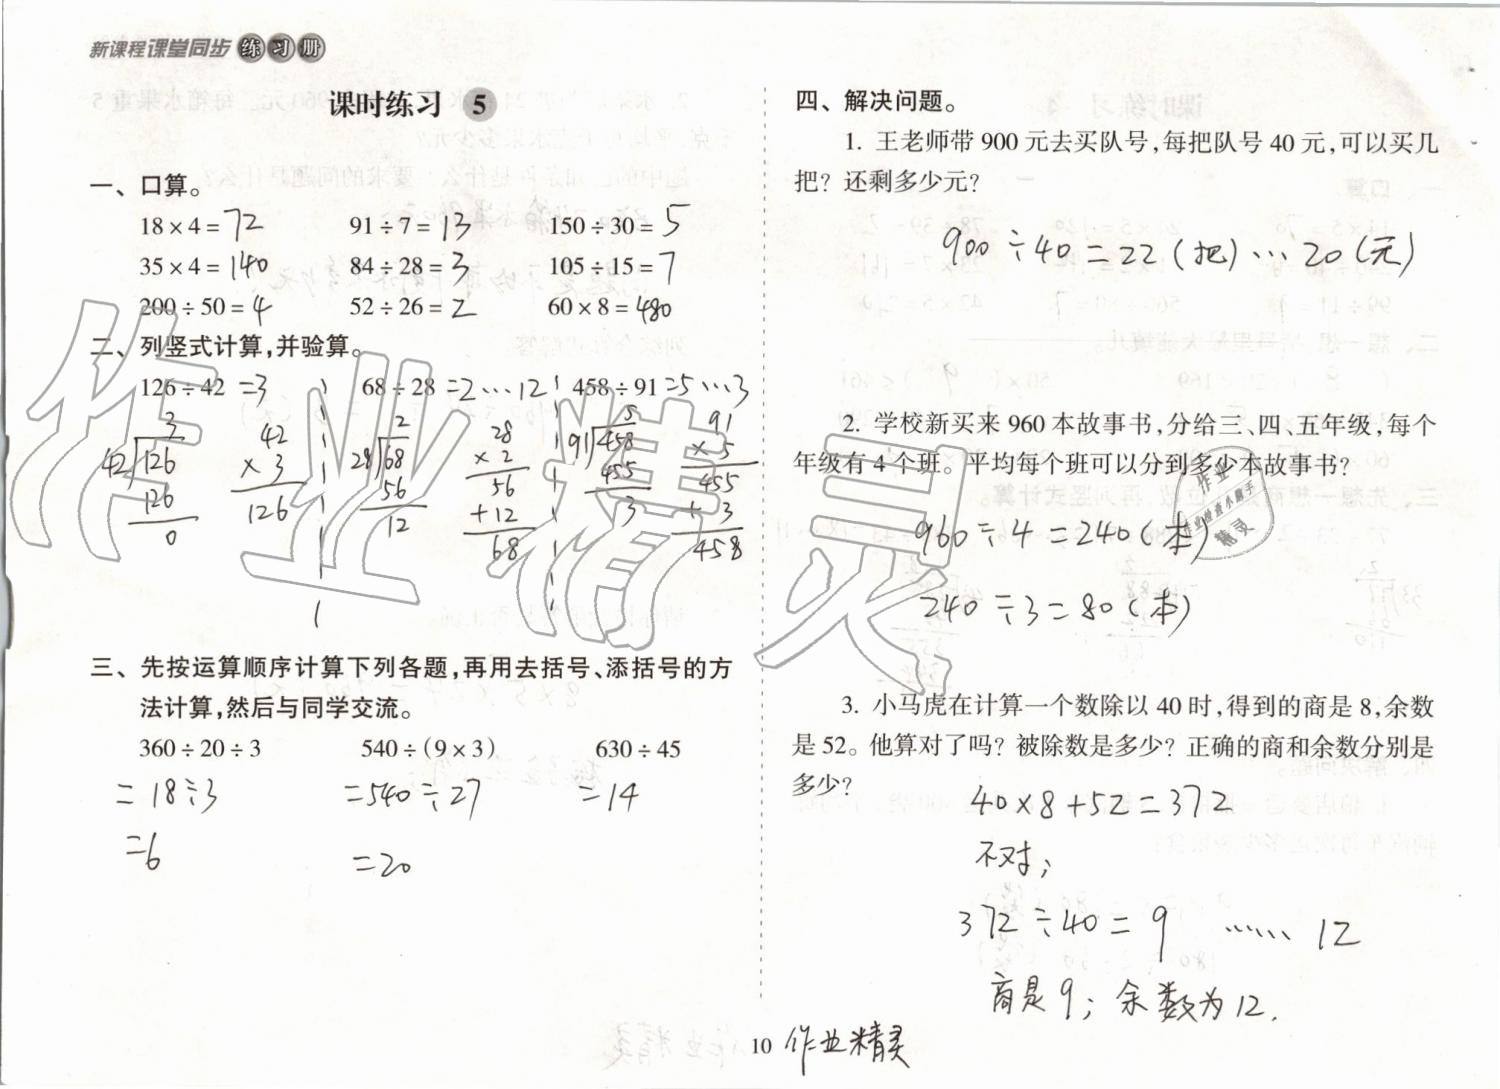 新课程课堂同步练习册
课时练习 5
一、口算。
18×4=72 91÷7=13 150÷30=5
35×4=140 84÷28=3 105÷15=7
200÷50=4 52÷26=2 60×8=480
二、列竖式计算,并验算。
126÷42=3 68÷28=2…12 458÷91=5…3
3 42 2 28 5 91
42 126 ×3 28 68 ×2 91 458 ×5
126 126 56 56 455 455
0 12 +12 3 +3
68 458
三、先按运算顺序计算下列各题,再用去括号、添括号的方
法计算,然后与同学交流。
360÷20÷3 540÷(9×3) 630÷45
=18÷3 =540÷27 =14
=6 =20
四、解决问题。
1. 王老师带900元去买队号,每把队号40元,可以买几
把?还剩多少元?
900÷40=22(把)…20(元)
2. 学校新买来960本故事书,分给三、四、五年级,每个
年级有4个班。平均每个班可以分到多少本故事书?
960÷4=240(本)
240÷3=80(本)
3. 小马虎在计算一个数除以40时,得到的商是8,余数
是52。他算对了吗?被除数是多少?正确的商和余数分别是
多少?
40×8+52=372
不对;
372÷40=9……12
商是9;余数为12.
10 作业精灵
作业精灵
作业
精灵